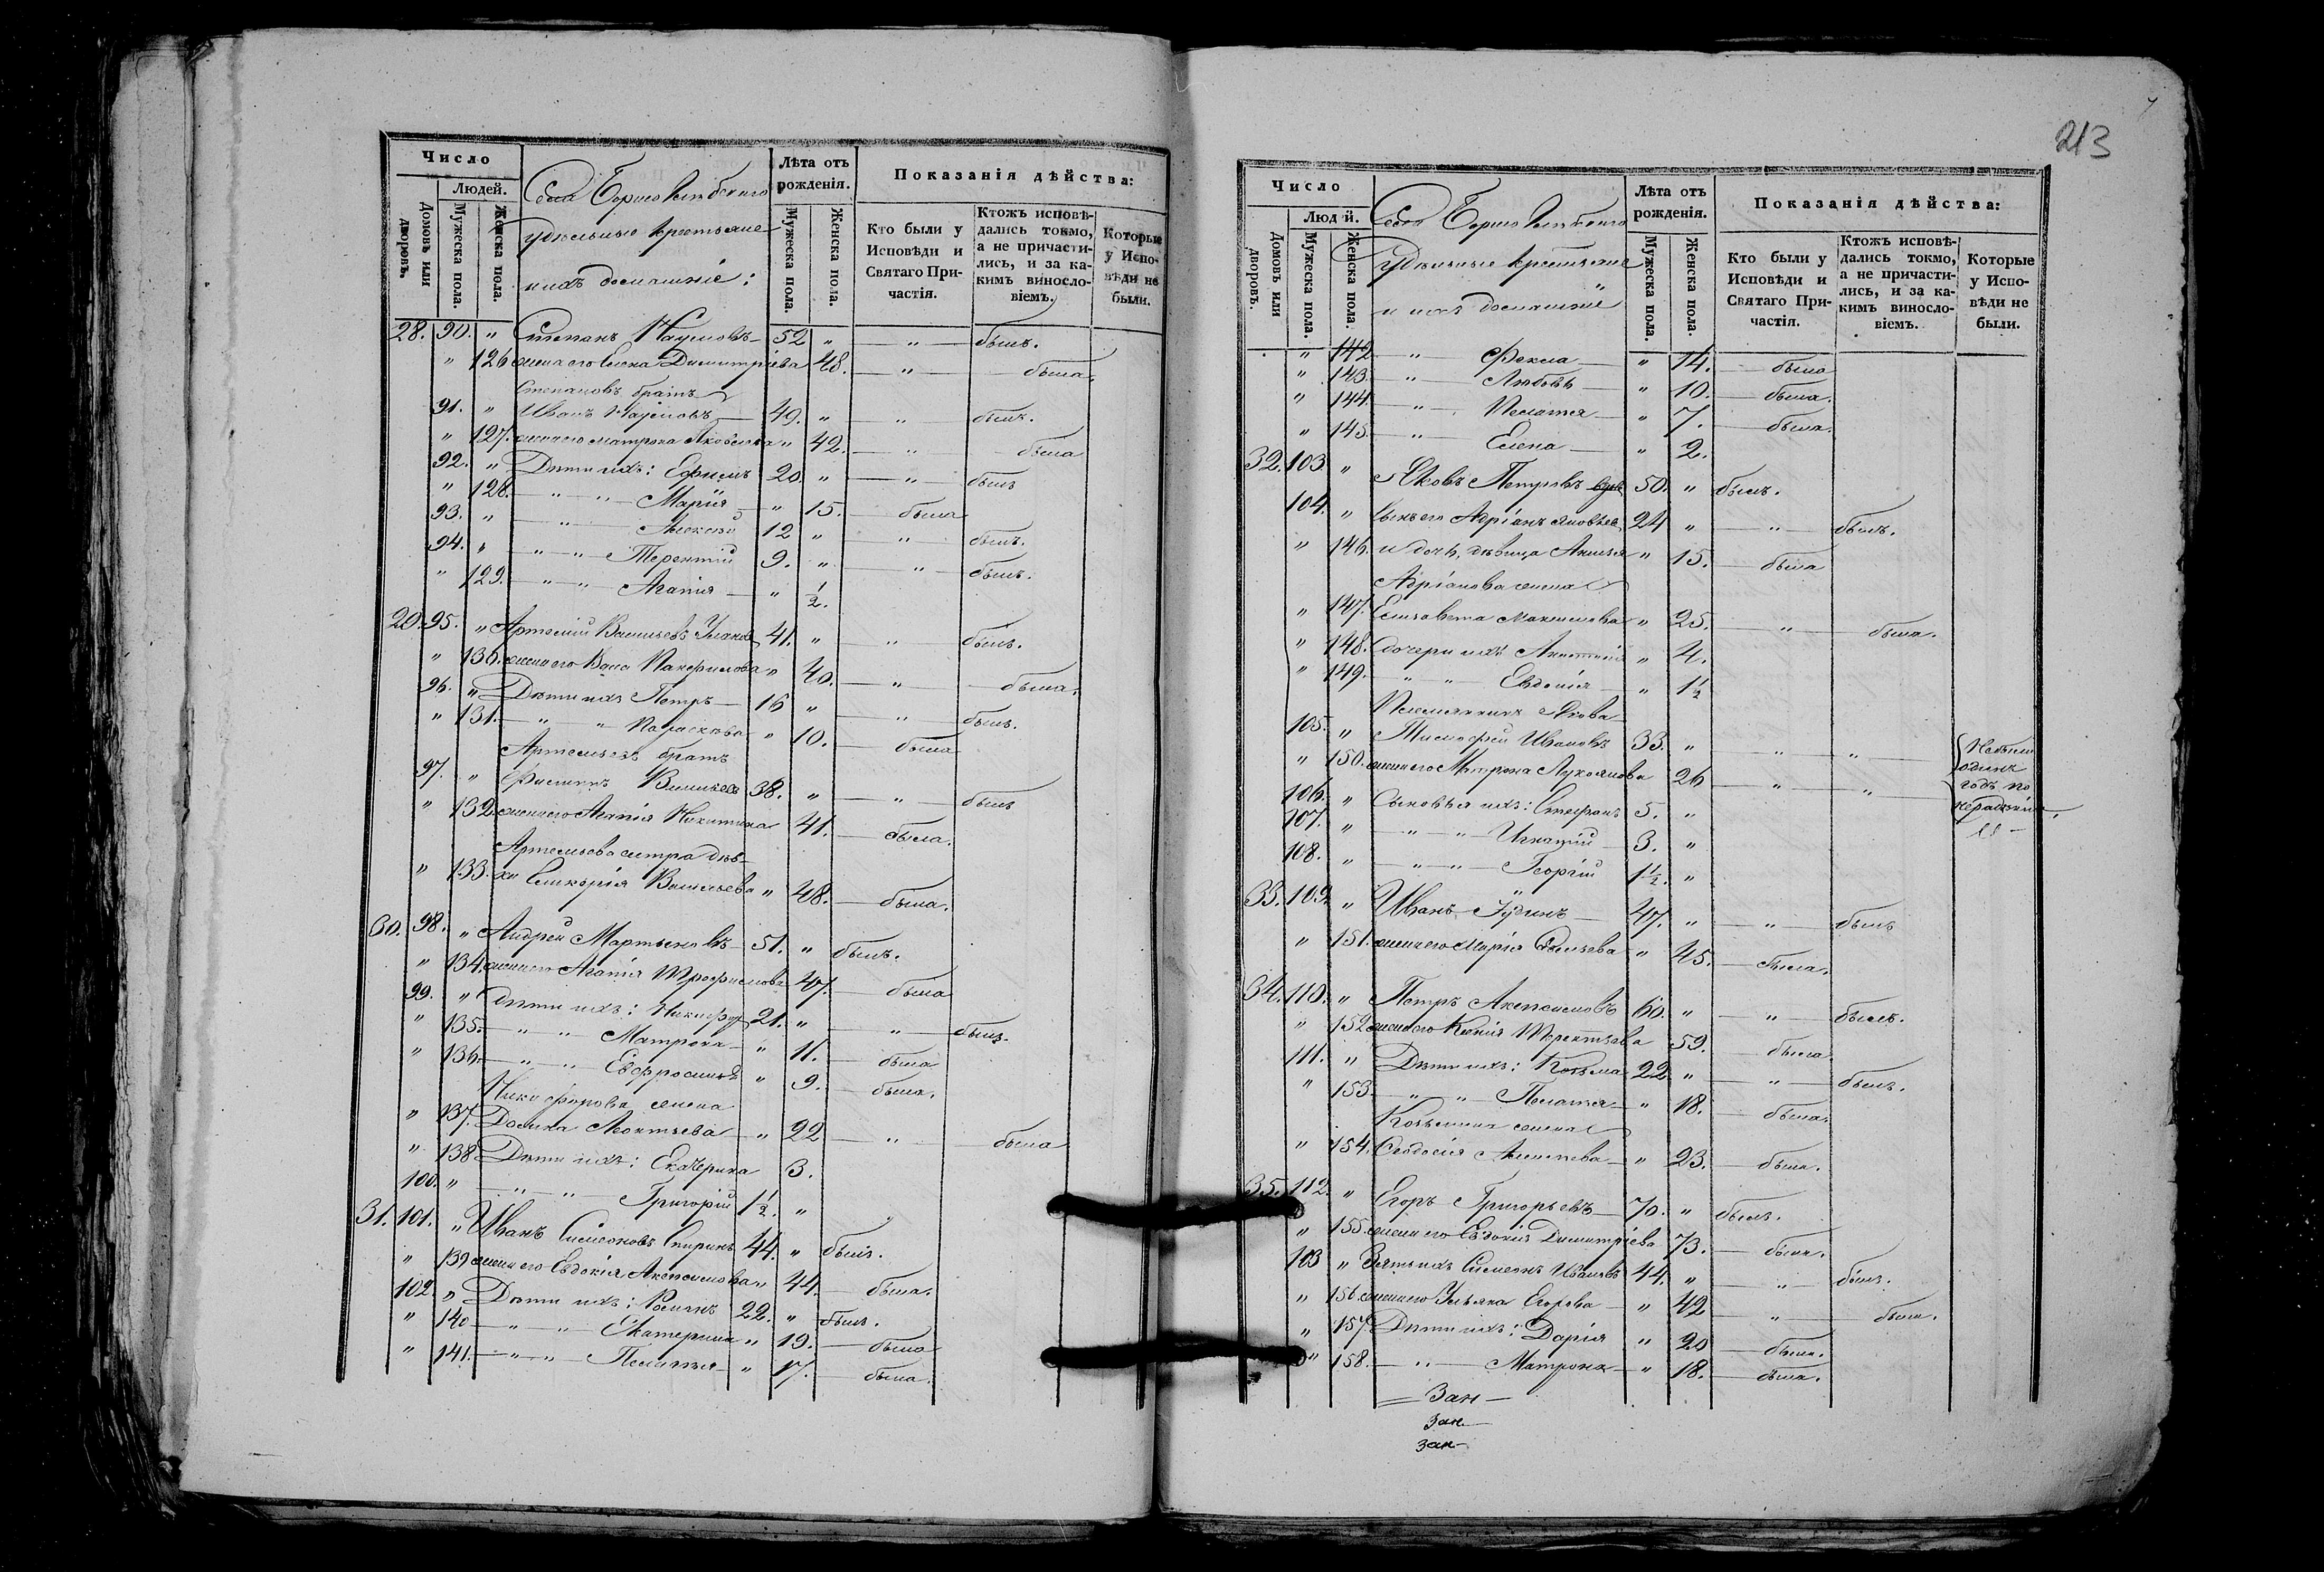 213
Число
Людей.
Домовъ или дворовъ.
Мужеска пола.
Женска пола.
Села Борисоглѣбскаго
удѣльные крестьяне
и ихъ домашніе:
Лѣта отъ рожденія.
Мужеска пола.
Женска пола.
Показанія дѣйства:
Кто были у Исповѣди и Святаго Причастія.
Ктожъ исповѣдались токмо, а не причастились, и за какимъ винословіемъ.
Которые у Исповѣди не были.
28. 90. " Степанъ Наумовъ 52 " " былъ.
" 126 жена его Елена Димитріева 48. " была.
Степановъ братъ
91. " Иванъ Наумовъ 49. " " былъ.
" 127. жена его Матрона Яковлева " 42. " была
92. " Дѣти ихъ: Ефимъ 20. " " былъ
" 128. " " Марія " 15. была
93. " " Алексѣй 12 " " былъ.
94. " " " Терентій 9. " " былъ.
" 129. " " Агапія " 1/2.
29. 95. " Артемій Васильевъ 41. " " былъ.
" 130. жена его Васса Панфилова " 40. " была.
96. " Дѣти ихъ Петръ 16 " " былъ.
" 131. " " Параскева " 10. была
Артемьевъ братъ
97. " Филиппъ Васильевъ 38. " " былъ
" 132. жена его Агапія Никитина 41. была.
Артемьева сестра дѣв-
" 133. ка Гликерія Васильева " 48. была.
30. 98. " Андрей Мартыновъ 51. " былъ.
" 134. жена его Агапія Трофимова 47. была
99. " Дѣти ихъ: Никифоръ 21. " " былъ.
" 135. " " Матрона " 11. была
" 136. " " Евфросинія " 9. была.
Никифорова жена
" 137. Домна Леонтьева " 22 " была
" 138 Дѣти ихъ: Екатерина 3.
100. " " " Григорій 1 1/2. "
31. 101. " Иванъ Симеоновъ Спиринъ 44. " былъ.
" 139 жена его Евдокія Акепсимова " 44. была.
102. " Дѣти ихъ: Романъ 22. " былъ.
" 140 " " Екатерина " 19. была
" 141. " " Пелагія " 17. была.
Число
Людей.
Домовъ или дворовъ.
Мужеска пола.
Женска пола.
Села Борисоглѣбскаго
Удѣльные крестьяне
и ихъ домашніе
Лѣта отъ рожденія.
Мужеска пола.
Женска пола.
Показанія дѣйства:
Кто были у Исповѣди и Святаго Причастія.
Ктожъ исповѣдались токмо, а не причастились, и за какимъ винословіемъ.
Которые у Исповѣди не были.
" 142 " Фекла " 14. была
" 143. " Любовь " 10. была.
" 144. " Пелагія " 7. была.
" 145. " Елена " 2.
32. 103 " Яковъ Петровъ 50. " былъ.
104. " Сынъ его Адріанъ Яковлевъ 24 " " былъ.
" 146. и дочь, дѣвица " 15. была
Адріанова жена
" 147. Елизавета Максимова " 25. " была.
" 148. Дочери ихъ " 4.
" 149. " " Евдокія " 1 1/2
Племянникъ Якова
105. " Тимофей Ивановъ 33. " " "
" 150. жена его Матрона Лукоянова 26 " "
Небыли
одинъ
годъ по
нерадѣнію
106. " Сыновья ихъ: Стефанъ 5. "
107. " " " Игнатій 3. "
108. " " " Георгій 1 1/2. "
33. 109. " Иванъ Іудинъ 47. " " былъ
" 151. жена его Марія " 45. была.
34. 110. " Петръ Акепсимовъ 60. " " былъ.
" 152 жена его Ксенія Терентьева 59. была.
111. " Дѣти ихъ: Козьма 22 " " былъ.
" 153. " " Пелагія " 18. была.
Козьмина жена
" 154. Феодосія Алексѣева " 23. была.
35. 112. " Егоръ Григорьевъ 70. " былъ.
" 155. жена его Евдокія Димитріева 73. была.
103 " Зять ихъ Симеонъ Ивановъ 44. " " былъ.
" 156. жена его Ульяна Егорова " 42 " была.
" 157. Дѣти ихъ: Дарія " 20 была.
" 158. " Матрона " 18. была.
Зан
Зан
зан